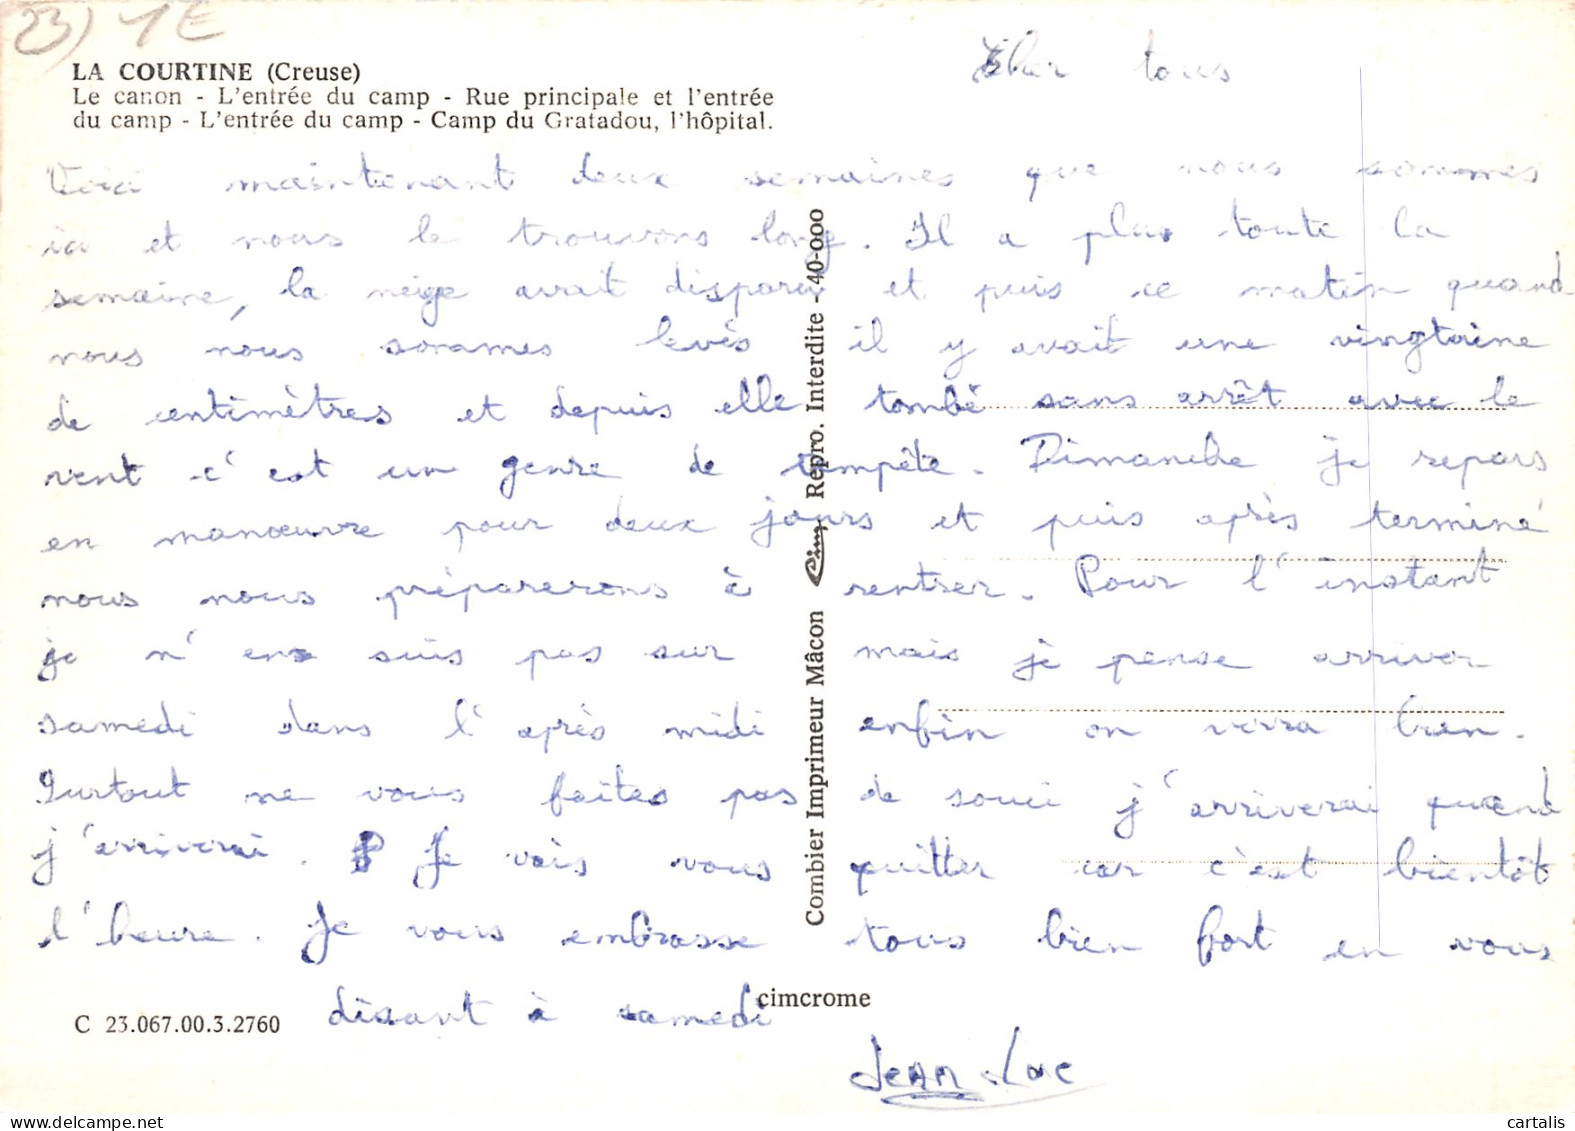 23) 1E
LA COURTINE (Creuse)
Le canon - L'entrée du camp - Rue principale et l'entrée
du camp - L'entrée du camp - Camp du Gratadou, l'hôpital.
Cher tous
Voici maintenant deux semaines que nous sommes
ici et nous le trouvons long. Il a plu toute la
semaine, la neige avait disparu et puis ce matin quand
nous nous sommes levés il y avait une vingtaine
de centimètres et depuis elle tombé sans arrêt avec le
vent c'est un genre de tempête. Dimanche je repars
en manœuvre pour deux jours et puis après terminé
nous nous préparerons à rentrer. Pour l'instant
je n'en suis pas sur mais je pense arriver
samedi dans l'après midi enfin on verra bien.
Surtout ne vous faites pas de souci j'arriverai quand
j'arriverai. Je vais vous quitter car c'est bientôt
l'heure. Je vous embrasse tous bien fort en vous
disant à samedi
Jean-Luc
Combier Imprimeur Mâcon Cim Repro. Interdite - 40-000
cimcrome
C 23.067.00.3.2760
cartalis